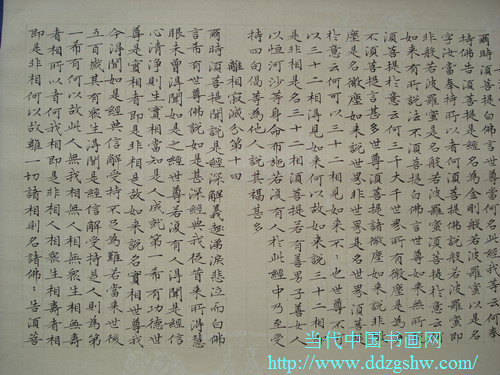 爾時須菩提白佛言世尊當何名此經我等云何奉
持佛告須菩提是經名為金剛般若波羅蜜以是名
字汝當奉持所以者何須菩提佛說般若波羅蜜即
非般若波羅蜜是名般若波羅蜜須菩提於意云何
如來有所說法不須菩提白佛言世尊如來無所說
須菩提於意云何三千大千世界所有微塵是為多
不須菩提言甚多世尊須菩提諸微塵如來說非微
塵是名微塵如來說世界非世界是名世界須菩提
於意云何可以三十二相見如來不：也世尊不可
以三十二相得見如來何以故如來說三十二相即
是非相是名三十二相須菩提若有善男子善女人
以恒河沙等身命布施若復有人於此經中乃至受
持四句偈等為他人說其福甚多
離相寂滅分第十四
爾時須菩提聞說是經深解義趣涕淚悲泣而白佛
言希有世尊佛說如是甚深經典我從昔來所得慧
眼未曾得聞如是之經世尊若復有人得聞是經信
心清淨則生實相當知是人成就第一希有功德世
尊是實相者即是非相是故如來說名實相世尊我
今得聞如是經典信解受持不足為難若當來世後
五百歲其有眾生得聞是經信解受持是人則為第
一希有何以故此人無我相無人相無眾生相無壽
者相所以者何我相即是非相人相眾生相壽者相
即是非相何以故離一切諸相則名諸佛：告須菩
当代中国书画网
http://www.ddzgshw.com/